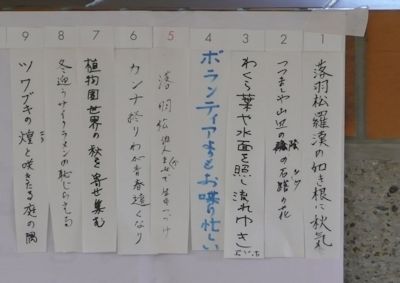 1
落羽松羅漢の如き根に秋気
2
つつましや山辺の陰の石蕗の花
ツワ
3
わくら葉や水面を照し流れゆき
4
ボランティア
お喋り忙しい
5
落羽松
6
カンナ終りわが青春遠くなり
7
植物園世界の秋を寄せ集む
8
冬迎うサイクラメンの恥じらえる
9
ツワブキの煌と咲きたる庭の隅